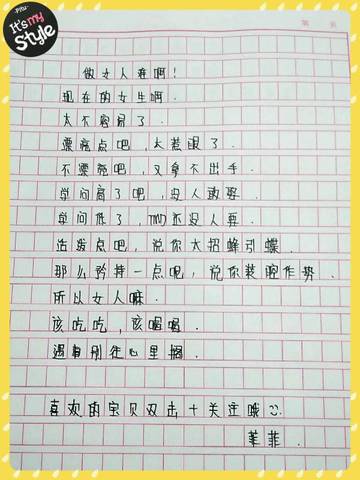 PITU
It's my
Style
第 页
做女人难啊！
现在的女生啊.
太不容易了.
漂亮点吧,太惹眼了.
不漂亮吧,又拿不出手.
学问高了吧,没人敢娶.
学问低了,TMD还没人要.
活泼点吧,说你太招蜂引蝶.
那么矜持一点呢,说你装腔作势.
所以女人嘛.
该吃吃,该喝喝.
遇事别往心里搁.
喜欢的宝贝双击十关注哦
菲菲.